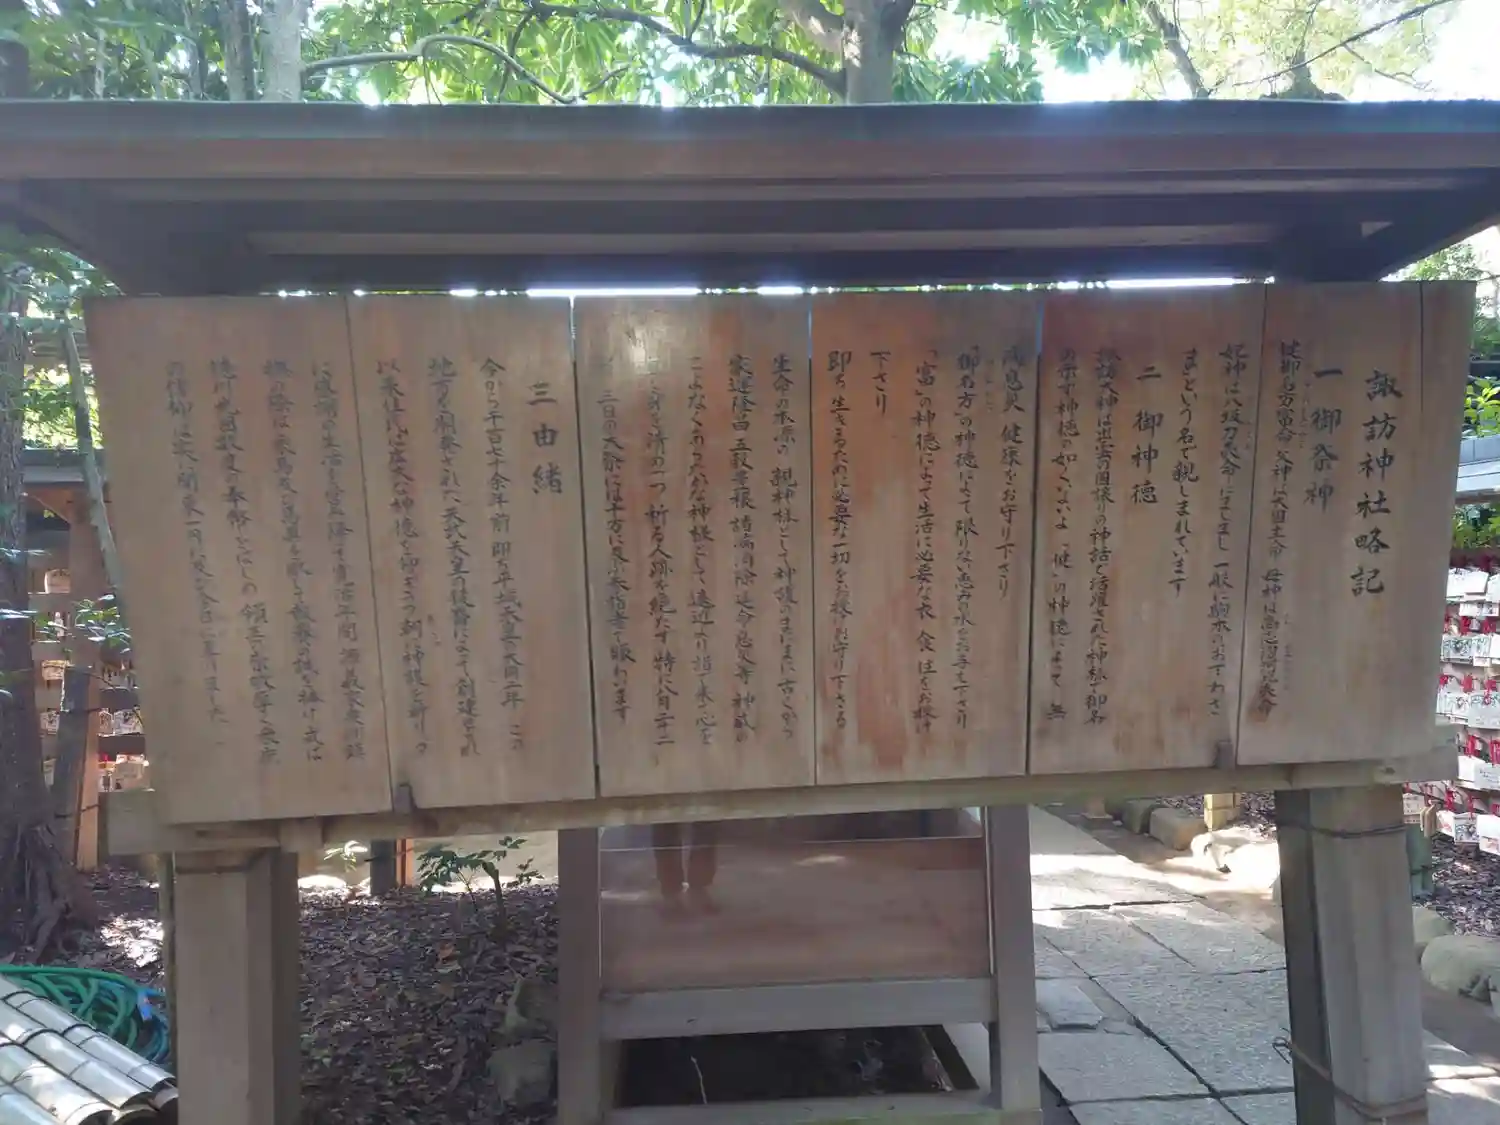 諏訪神社略記
一 御祭神
健御名方富命 父神は大国主命 母神は高志沼河比売命
妃神は八坂刀売命にましまし 一般に駒木のおすわさ
まという名で親しまれています
二 御神徳
諏訪大神は出雲の国譲りの神話で活躍された神様で御名
の示す神徳の如くいよいよ「健」の神徳によって 無
病息災 健康をお守り下さり
「御名方」の神徳によって限りない恵みの水をお与え下さり
「富」の神徳によって生活に必要な衣 食 住をお授け
下さり
即ち 生きるために必要な一切をお授けお守り下さる
生命の本源の 親神様として神護のまにまに古くから
家運隆昌 五穀豊穣 諸病消除 延命息災等 神威の
こよなくあらたかな神様として 遠近より詣で来 心を
身を清めつつ祈る人跡を絶たず 特に八月二十二
三日の大祭には十方に及ぶ参詣者で賑わいます
三 由緒
今から千百七十余年前 即ち平城天皇の大同二年 この
地方を開発された 天武天皇の後裔によって創建され
以来住民は広大な神徳を仰ぎつつ 神護を祈りつつ
の生活を営み降って寛治年間 源義家奥州
の際は 乗馬及び馬具を献じて報賽の誠を捧げ 或は
徳川光圀数度の奉幣をなしの 領主の崇敬厚く 庶民
の信仰は 関東一円に及び今日に至りました